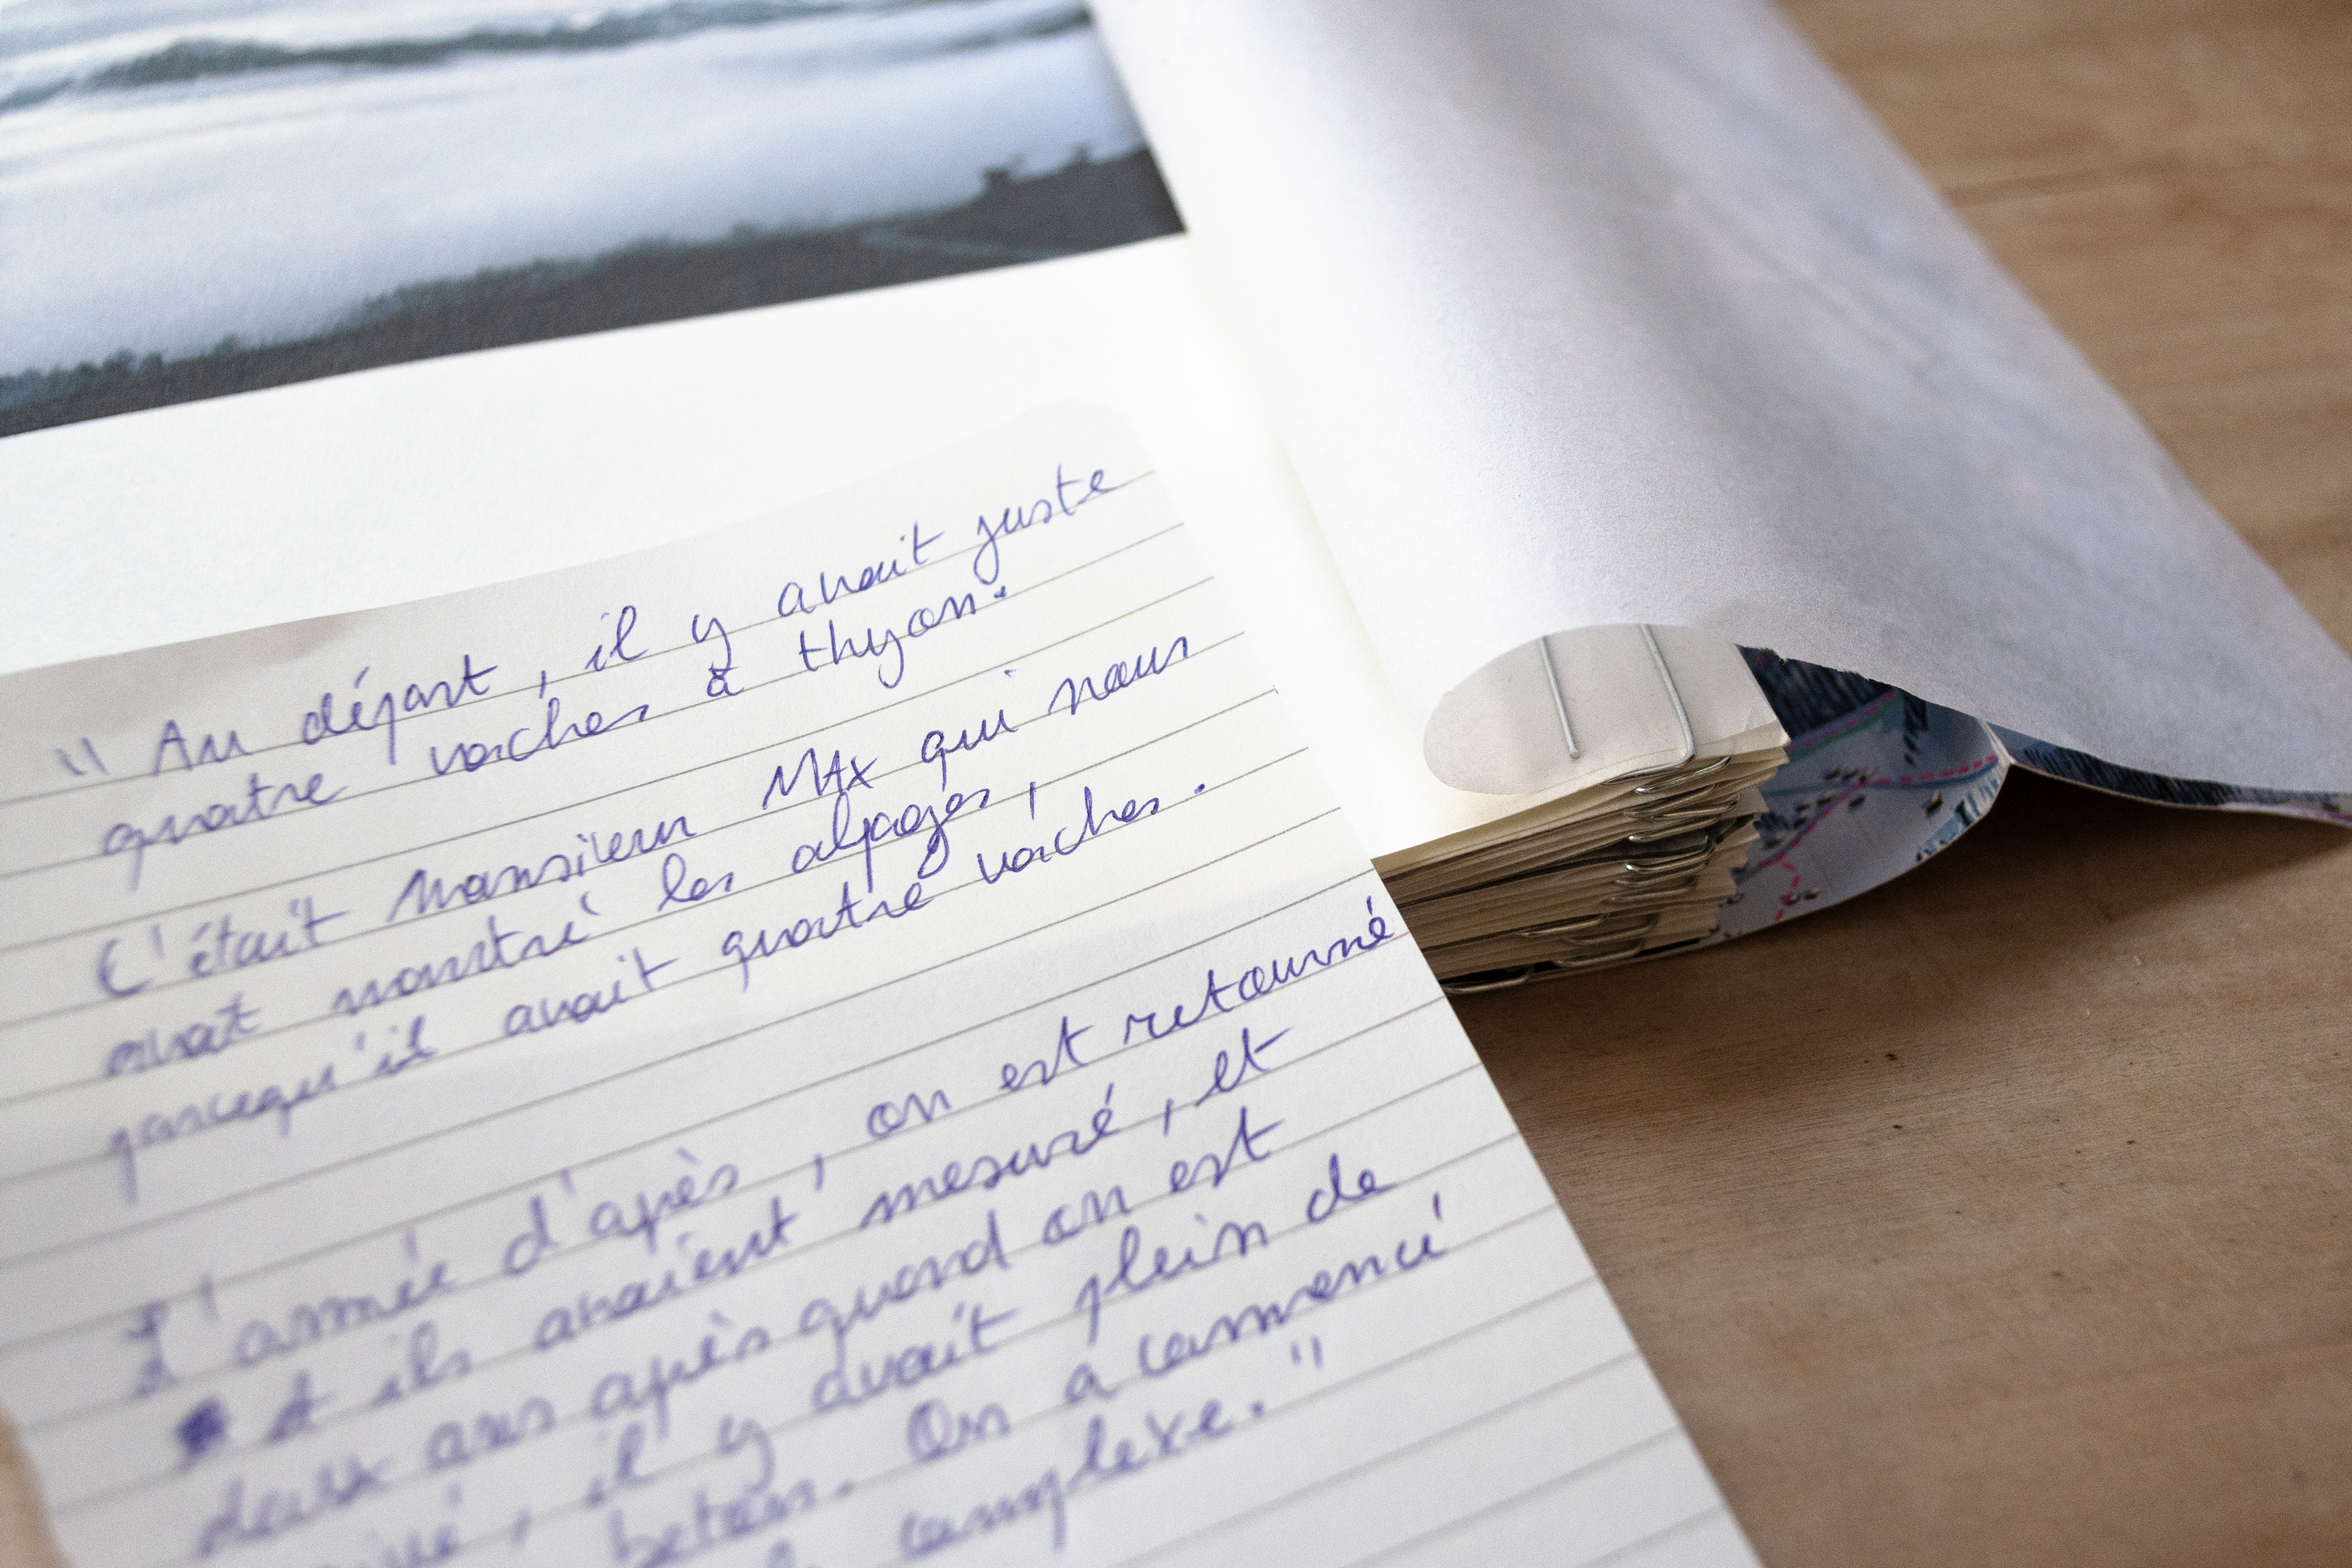 " Au départ, il y avait juste
quatre vaches à thyon.
C'était Monsieur MAX qui nous
avait montré les alpages,
parcequ'il avait quatre vaches.
L'année d'après, on est retourné
et ils avaient mesuré, et
deux ans après quand on est
il y avait plein de
béton. On a commencé
complexe."